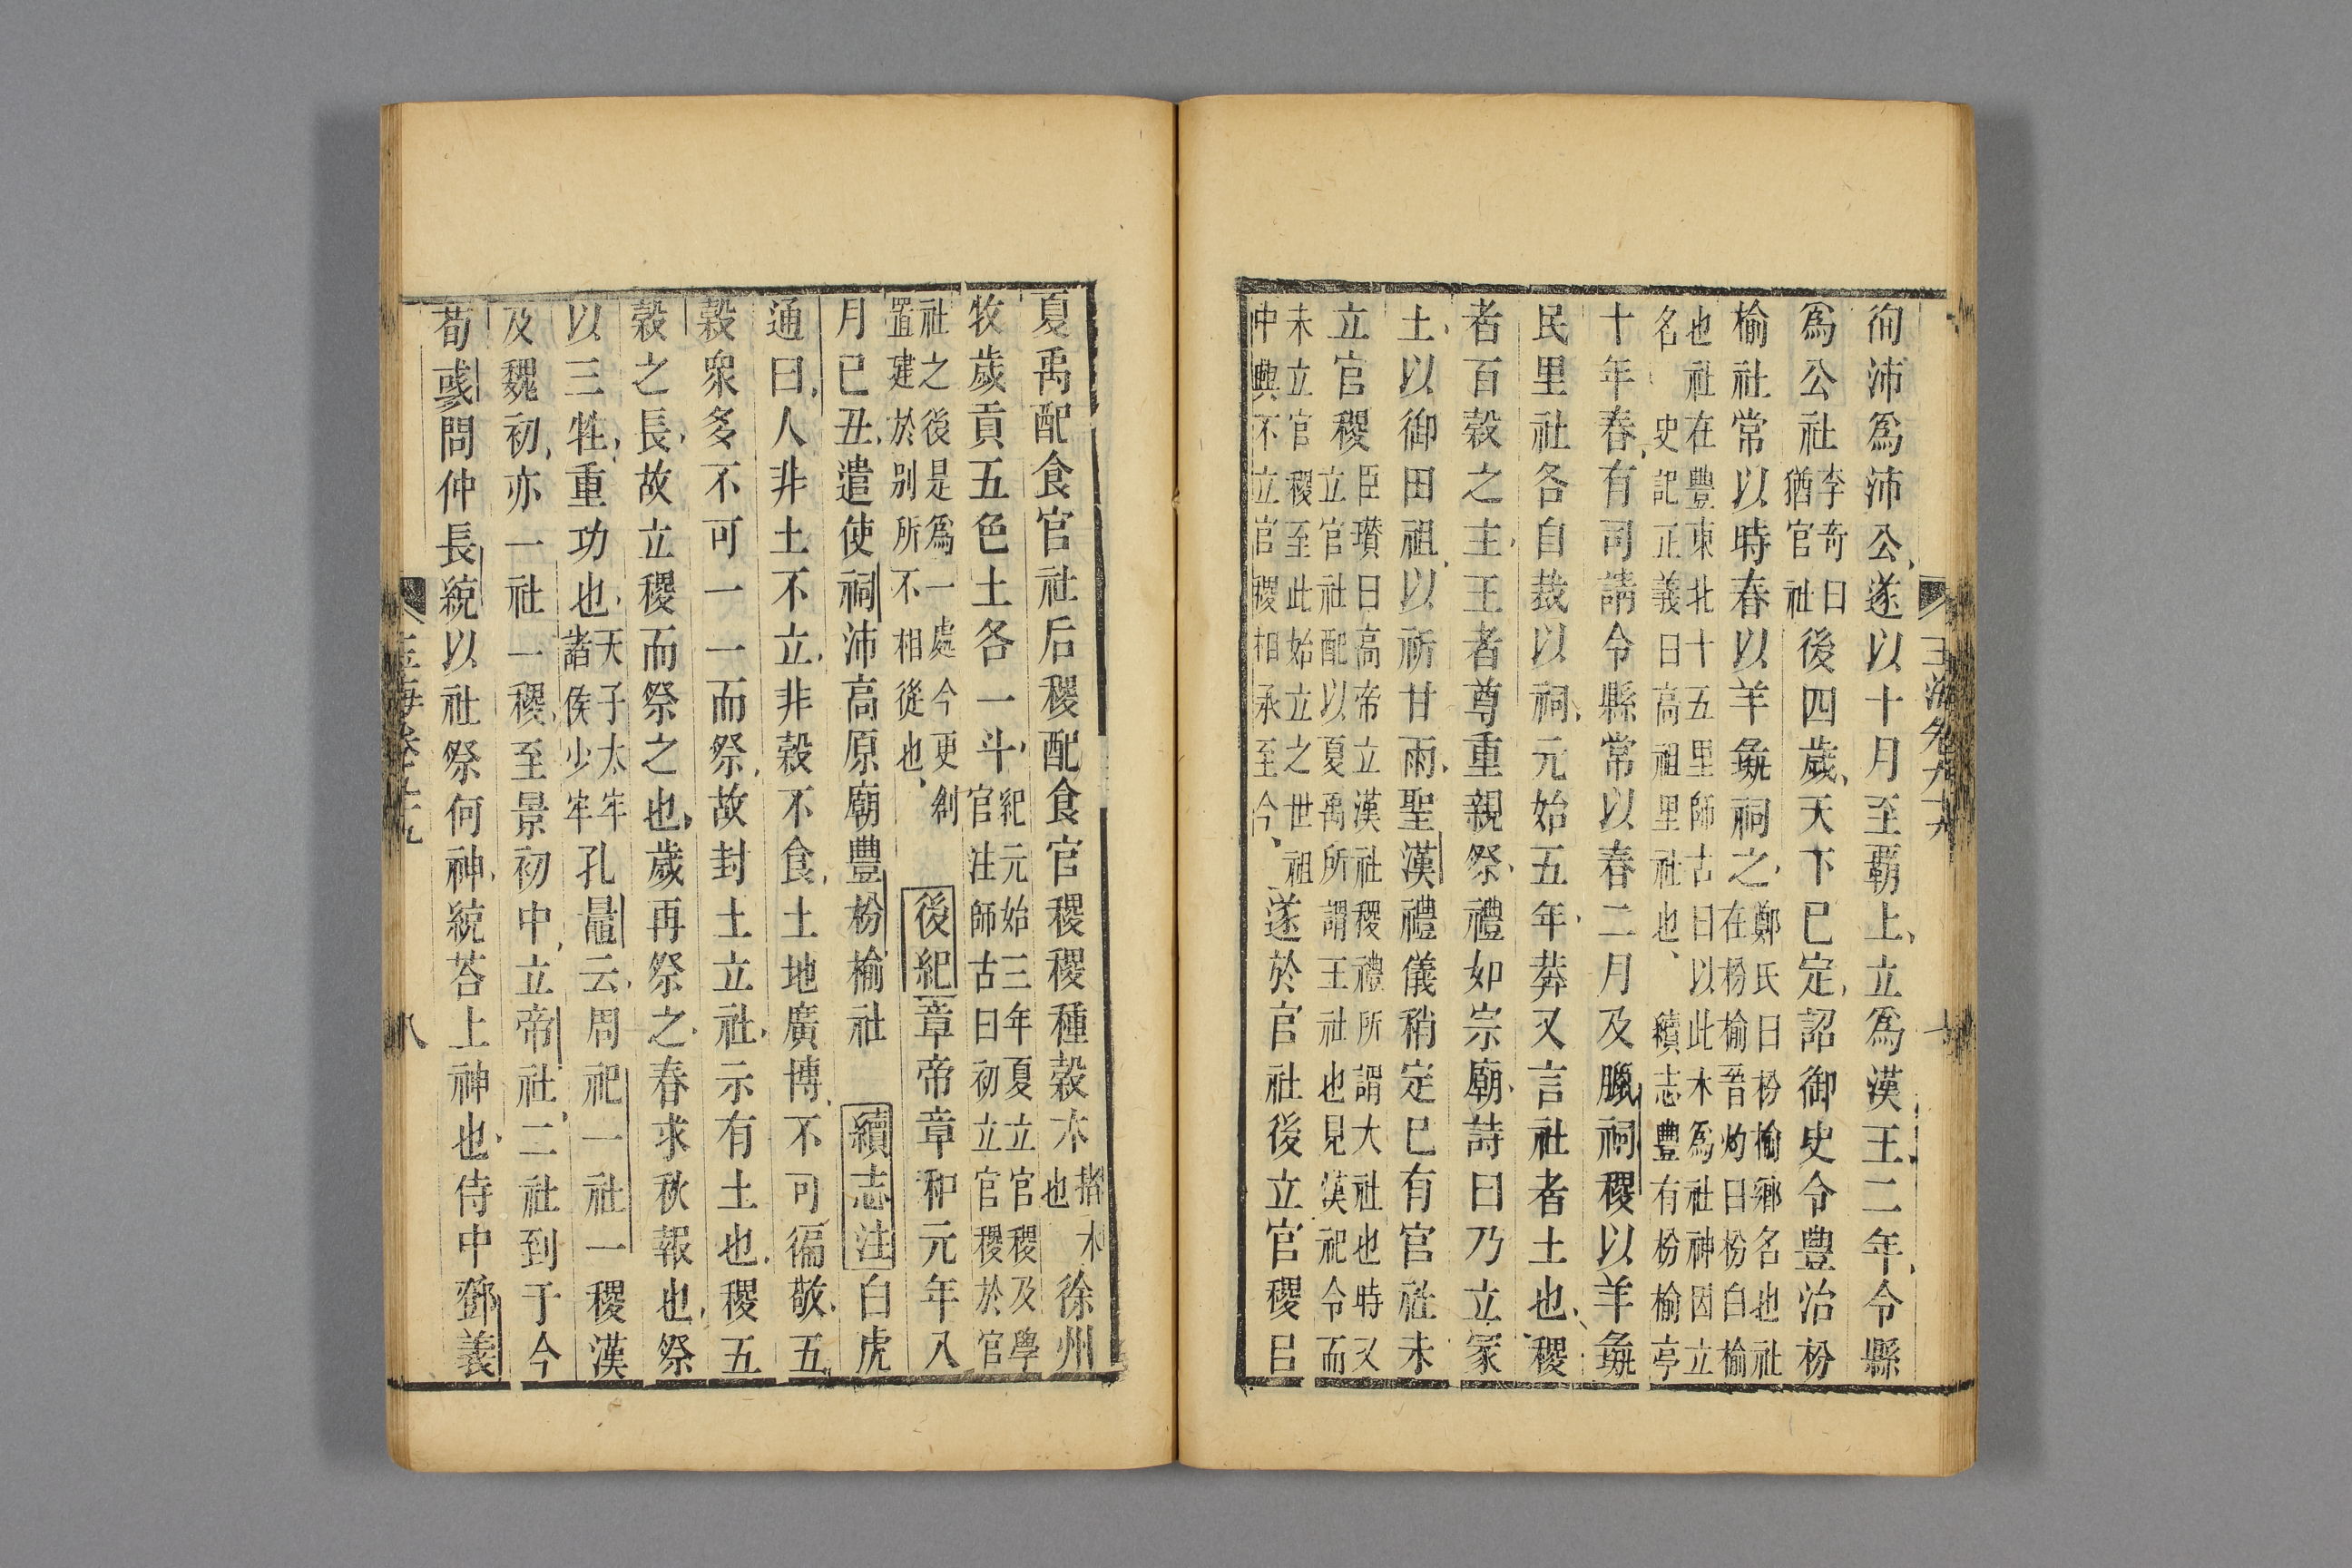 徇沛爲沛公遂以十月至覇上立爲漢王二年令縣
爲公社李奇曰猶官社後四歲天下巳定詔御史令豐治枌
榆社常以時春以羊彘祠之鄭氏曰枌榆鄉名也社在枌榆晉灼曰枌白榆
也社在豐東北十五里師古曰以此木爲社神因立名
史記正義曰高祖里社也續志豐有枌榆亭
十年春有司請令縣常以春二月及臘祠稷以羊彘
民里社各自裁以祠元始五年莽又言社者土也稷
者百穀之主王者尊重親祭禮如宗廟詩曰乃立冢
土以御田祖以祈甘雨聖漢禮儀稍定巳有官社未
立官稷臣瓉曰高帝立漢社稷禮所謂大社也時又立官社配以夏禹所謂王社也見漢祀令而
未立官稷至此始立之世祖中興不立官稷相承至今遂於官社後立官稷㠯
玉海卷九十九
夏禹配食官社后稷配食官稷稷種穀木楮木也徐州
牧歲貢五色土各一斗紀元始三年夏立官稷及學官注師古曰初立官稷於官
社之後是爲一處今更創置建於别所不相從也後紀章帝章和元年八
月巳丑遣使祠沛高原廟豐枌榆社續志注白虎
通曰人非土不立非穀不食土地廣博不可徧敬五
穀衆多不可一一而祭故封土立社示有土也稷五
穀之長故立稷而祭之也歲再祭之春求秋報也祭
以三牲重功也天子太牢諸侯少牢孔鼂云周祀一社一稷漢
及魏初亦一社一稷至景初中立帝社二社到于今
荀彧問仲長統以社祭何神統荅上神也侍中鄧義
八